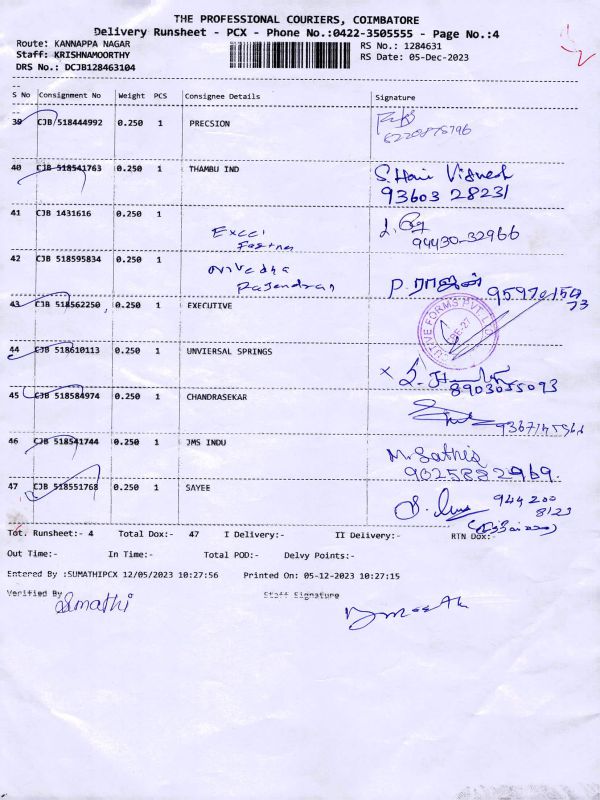 THE PROFESSIONAL COURIERS, COIMBATORE
Delivery Runsheet - PCX - Phone No.:0422-3505555 - Page No.:4
Route: KANNAPPA NAGAR RS No.: 1284631
Staff: KRISHNAMOORTHY RS Date: 05-Dec-2023
DRS No.: DCJB128463104
S No Consignment No Weight PCS Consignee Details Signature
39 CJB 518444992 0.250 1 PRECSION
40 CJB 518541763 0.250 1 THAMBU IND S. Hari Vignesh
93603 28231
41 CJB 1431616 0.250 1
Excel 94430-32966
Fastner
42 CJB 518595834 0.250 1 Nivedha P. ராஜன்
Rajendran
43 CJB 518562250 0.250 1 EXECUTIVE
44 CJB 518610113 0.250 1 UNVIERSAL SPRINGS
8903055093
45 CJB 518584974 0.250 1 CHANDRASEKAR
46 CJB 518541744 0.250 1 JMS INDU M. Sathis
9025832969.
47 CJB 518551768 0.250 1 SAYEE 944 200
8123
Tot. Runsheet:- 4 Total Dox:- 47 I Delivery:- II Delivery:- RTN Dox:-
Out Time:- In Time:- Total POD:- Delvy Points:-
Entered By :SUMATHIPCX 12/05/2023 10:27:56 Printed On: 05-12-2023 10:27:15
Verified By Sumathi Staff Signature